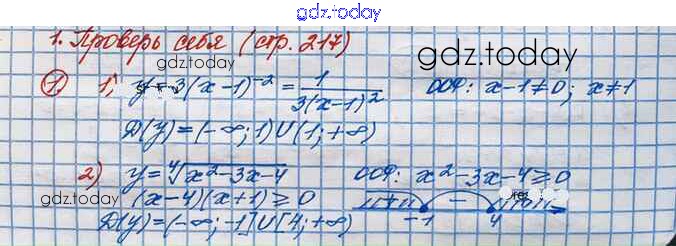 gdz.today
1. Проверь себя (стр. 217)
gdz.today
1. 1) y = 3(x-1)^{-2} = \frac{1}{3(x-1)^2} ООФ: x-1≠0; x≠1
D(y) = (-∞; 1) U (1; +∞)
2) y = \sqrt[4]{x^2-3x-4} ООФ: x^2-3x-4 ⩾ 0
gdz.today
(x-4)(x+1) ⩾ 0 + − +
-1 4
D(y) = (-∞; -1] U [4; +∞)